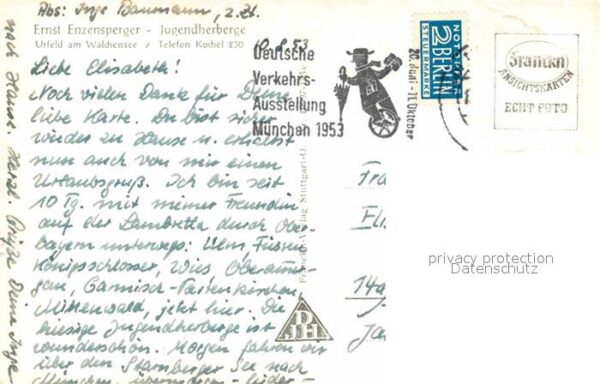 Abs: Inge Baumann, z. Zt.
Ernst Enzensperger - Jugendherberge
Urfeld am Walchensee / Telefon Kochel 230
10.8.53
Liebe Elisabeth!
Noch vielen Dank für Deine
liebe Karte. Du bist sicher
wieder zu Hause u. erhältst
nun auch von mir einen
Urlaubsgruß. Ich bin seit
10 Tg. mit meiner Freundin
auf der Lambretta durch Ober-
bayern unterwegs: Ulm, Füssen
Königsschlösser, Wies, Oberammer-
gau, Garmisch-Partenkirchen,
Mittenwald, jetzt hier. Die
hiesige Jugendherberge ist
wunderschön. Morgen fahren wir
über den Starnberger See nach
München, übermorgen - leider -
nach Hause. Herzl. Grüße Deine Inge
Deutsche
Verkehrs-
Ausstellung
München 1953
20. Juni - 11. Oktober
NOTOPFER
2 BERLIN
STEUERMARKE
ANSICHTSKARTEN
ECHT FOTO
Verlag Stuttgart-O.
DJH
14a
privacy protection
Datenschutz